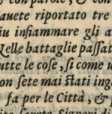 con parole, &
auete riportato tre
iu infiammare gli a
Nelle battaglie passat
utte le cose, si come u
on sete mai stati ing
fa per le Città, &